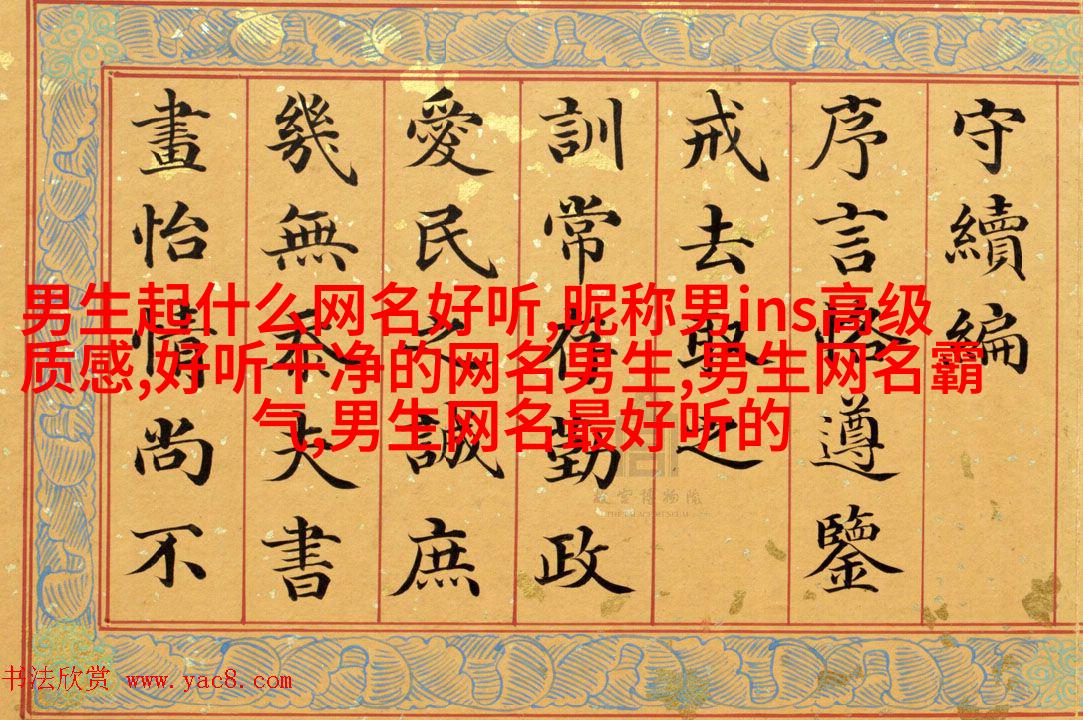 守續編
序言恪遵鑒
戒去之
訓常存勤政
愛民之誠庶
幾無忝夫書
畫怡情尚不
男生起什么网名好听,昵称男ins高级
质感,好听干净的网名男生,男生网名霸
气,男生网名最好听的
故宫博物院
THE PALACE MUSEUM
书法欣赏 www.yac8.com